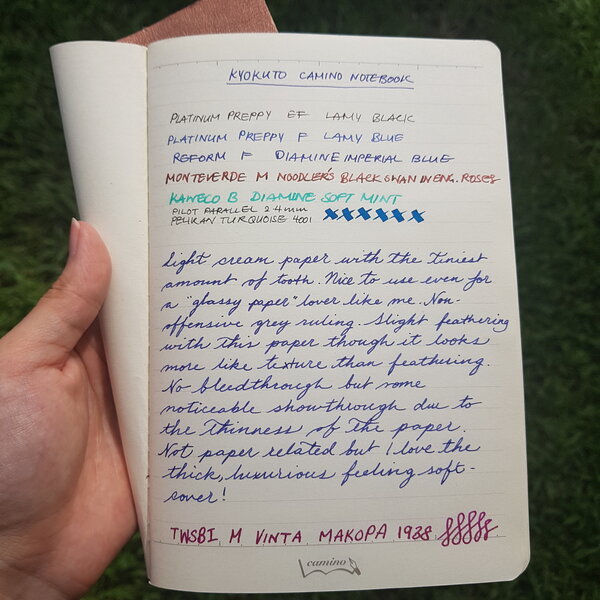 KYOKUTO CAMINO NOTEBOOK
PLATINUM PREPPY EF LAMY BLACK
PLATINUM PREPPY F LAMY BLUE
REFORM F DIAMINE IMPERIAL BLUE
MONTEVERDE M NOODLER'S BLACK SWAN IN ENG. ROSES
KAWECO B DIAMINE SOFT MINT
PILOT PARALLEL 2.4mm
PELIKAN TURQUOISE 4001
Light cream paper with the tiniest
amount of tooth. Nice to use even for
a "glassy paper" lover like me. Non-
offensive grey ruling. Slight feathering
with this paper though it looks
more like texture than feathering.
No bleedthrough but some
noticeable showthrough due to
the thinness of the paper.
Not paper related but I love the
thick, luxurious feeling soft-
cover!
TWSBI M VINTA MAKOPA 1928
camino